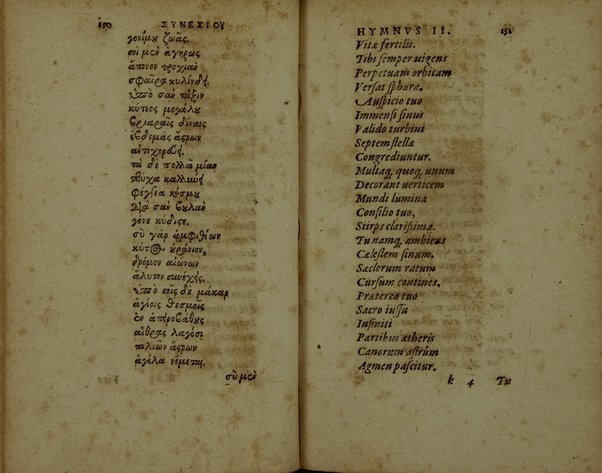 150 ΣΥΝΕΣΙΟΥ
γονίμου ζωᾶς.
σοὶ μὲν ἀγήρως
ἄπονον τροχιὰν
σφαῖρα κυλίνδει.
ὑπὸ σὰν τάξιν
κύτεος μεγάλου
βριαραῖς δίναις
ἑβδομὰς ἄστρων
ἀντιχορεύει.
τὰ δὲ πολλὰ μίαν
πτύχα καλλύνει
φέγγεα κόσμου
διὰ σὰν βουλὰν
γόνε κύδιστε.
σὺ γὰρ ἀμφιθέων
κύτος οὐράνιον,
δρόμον αἰώνων
ἄλυτον συνέχεις.
ὑπὸ σοῖς δὲ μάκαρ
ἁγίοις θεσμοῖς
ἐν ἀπειροβάθοις
αἴθρας λαγόσι
πολιῶν ἄστρων
ἀγέλα νέμεται.
σὺ μὲν
HYMNVS II. 151
Vitæ fertilis.
Tibi semper uigens
Perpetuam orbitam
Versat sphæra.
Auspicio tuo
Immensi sinus
Valido turbini
Septem stellæ
Congrediuntur.
Multaq, quoq, unum
Decorant uerticem
Mundi lumina
Consilio tuo,
Stirps clarissimæ.
Tu namq, ambiens
Cælestem sinum,
Sæclorum ratum
Cursum contines.
Præterea tuo
Sacro iussu
Infiniti
Partibus ætheris
Canorum astrûm
Agmen pascitur.
k 4 Tu